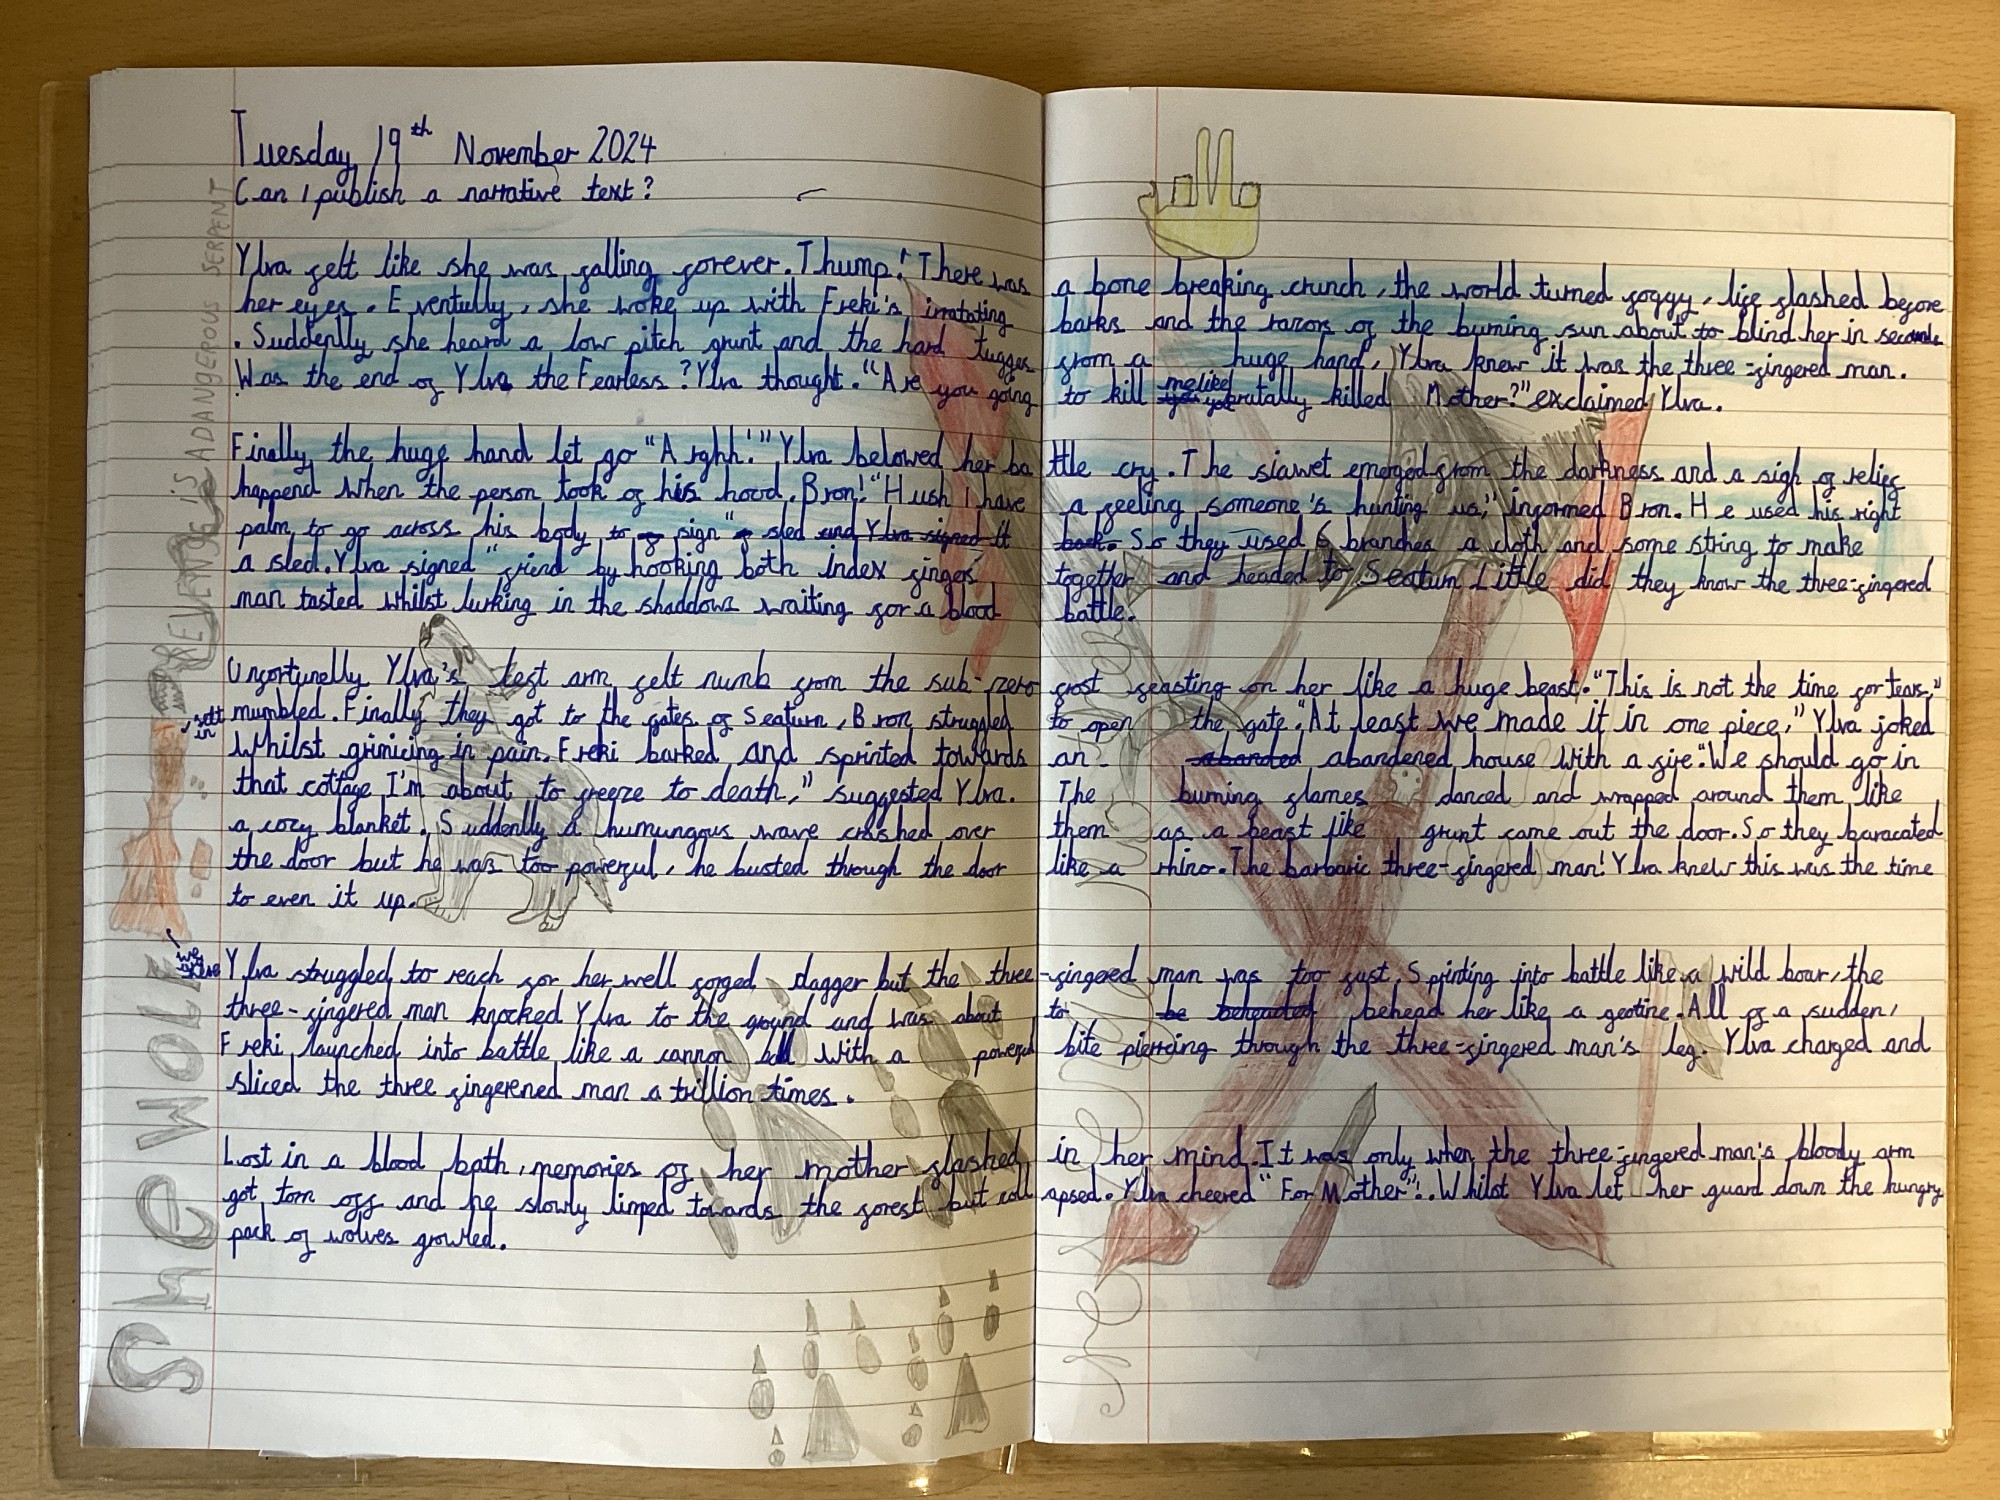 Tuesday 19th November 2024
Can I publish a narrative text?
Ylva felt like she was falling forever. Thump! There was a bone breaking crunch, the world turned foggy, life flashed before
her eyes. Eventully, she woke up with Freki's irratating barks and the razors of the burning sun about to blind her in seconds
. Suddenlly she heard a low pitch grunt and the hard tugges from a huge hand, Ylva knew it was the three-fingered man.
Was the end of Ylva the Fearless? Ylva thought. "Are you going to kill me like brutally killed Mother?" exclaimed Ylva.
Finally the huge hand let go "Arghh!" Ylva belowed her ba ttle cry. The siawet emerged from the darkness and a sigh of relief
happend when the person took of his hood. Bron! "Hush I have a feeling someone's hunting us," informed Bron. He used his right
palm to go across his body to sign sled and Ylva signed it back. So they used 6 branches a cloth and some string to make
a sled. Ylva signed "friend by hooking both index finger together and headed to Seaturn. Little did they know the three-fingered
man tasted whilst lurking in the shaddows waiting for a blood battle.
Unfortunelly Ylva's left arm felt numb from the sub-zero frost feasting on her like a huge beast. "This is not the time for tears,"
mumbled. Finally they got to the gates of Seaturn, Bron struggled to open the gate. "At least we made it in one piece," Ylva joked
Whilst grimicing in pain. Freki barked and sprinted towards an abanded abandened house with a fire. "We should go in
that cottage I'm about to freeze to death," suggested Ylva. The burning flames danced and wrapped around them like
a cozy blanket. Suddenlly a humungous wave crashed over them as a beast like grunt came out the door. So they baracated
the door but he was too powerful, he busted through the door like a rhino. The barbaric three-fingered man! Ylva knew this was the time
to even it up.
Ylva struggled to reach for her well forged dagger but the three -fingered man was too fast. Sprinting into battle like a wild boar, the
three-fingered man knocked Ylva to the ground and was about to be beheaded behead her like a geotine. All of a sudden,
Freki launched into battle like a cannon ball with a powerful bite piercing through the three-fingered man's leg. Ylva charged and
sliced the three fingerened man a trillion times.
Lost in a blood bath, memories of her mother flashed in her mind. It was only when the three-fingered man's bloody arm
got torn off and he slowly limped towards the forest but coll apsed. Ylva cheered "For Mother"!. Whilst Ylva let her guard down the hungry
pack of wolves growled.
She WOLF
REVENGE is A DANGEROUS SERPENT